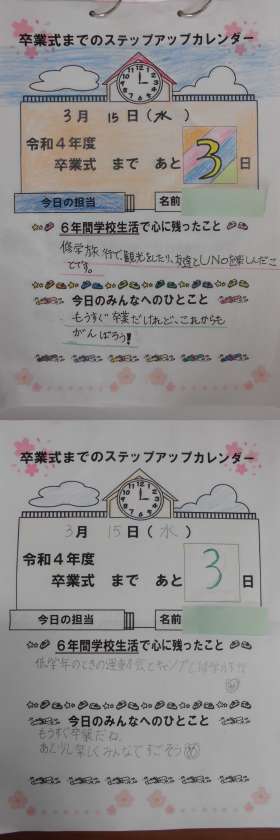 卒業式までのステップアップカレンダー
3月 15日(水)
令和4年度
卒業式 まで あと 3 日
今日の担当 名前
6年間学校生活で心に残ったこと
修学旅行で、観光をしたり、友達とUNOを楽しんだこ
とです。
今日のみんなへのひとこと
もうすぐ卒業だけれど、これからも
がんばろう!
卒業式までのステップアップカレンダー
3月 15日(水)
令和4年度
卒業式 まで あと 3 日
今日の担当 名前
6年間学校生活で心に残ったこと
低学年のときの運動会とキャンプ
今日のみんなへのひとこと
もうすぐ卒業だね。
楽しくみんなですごそう